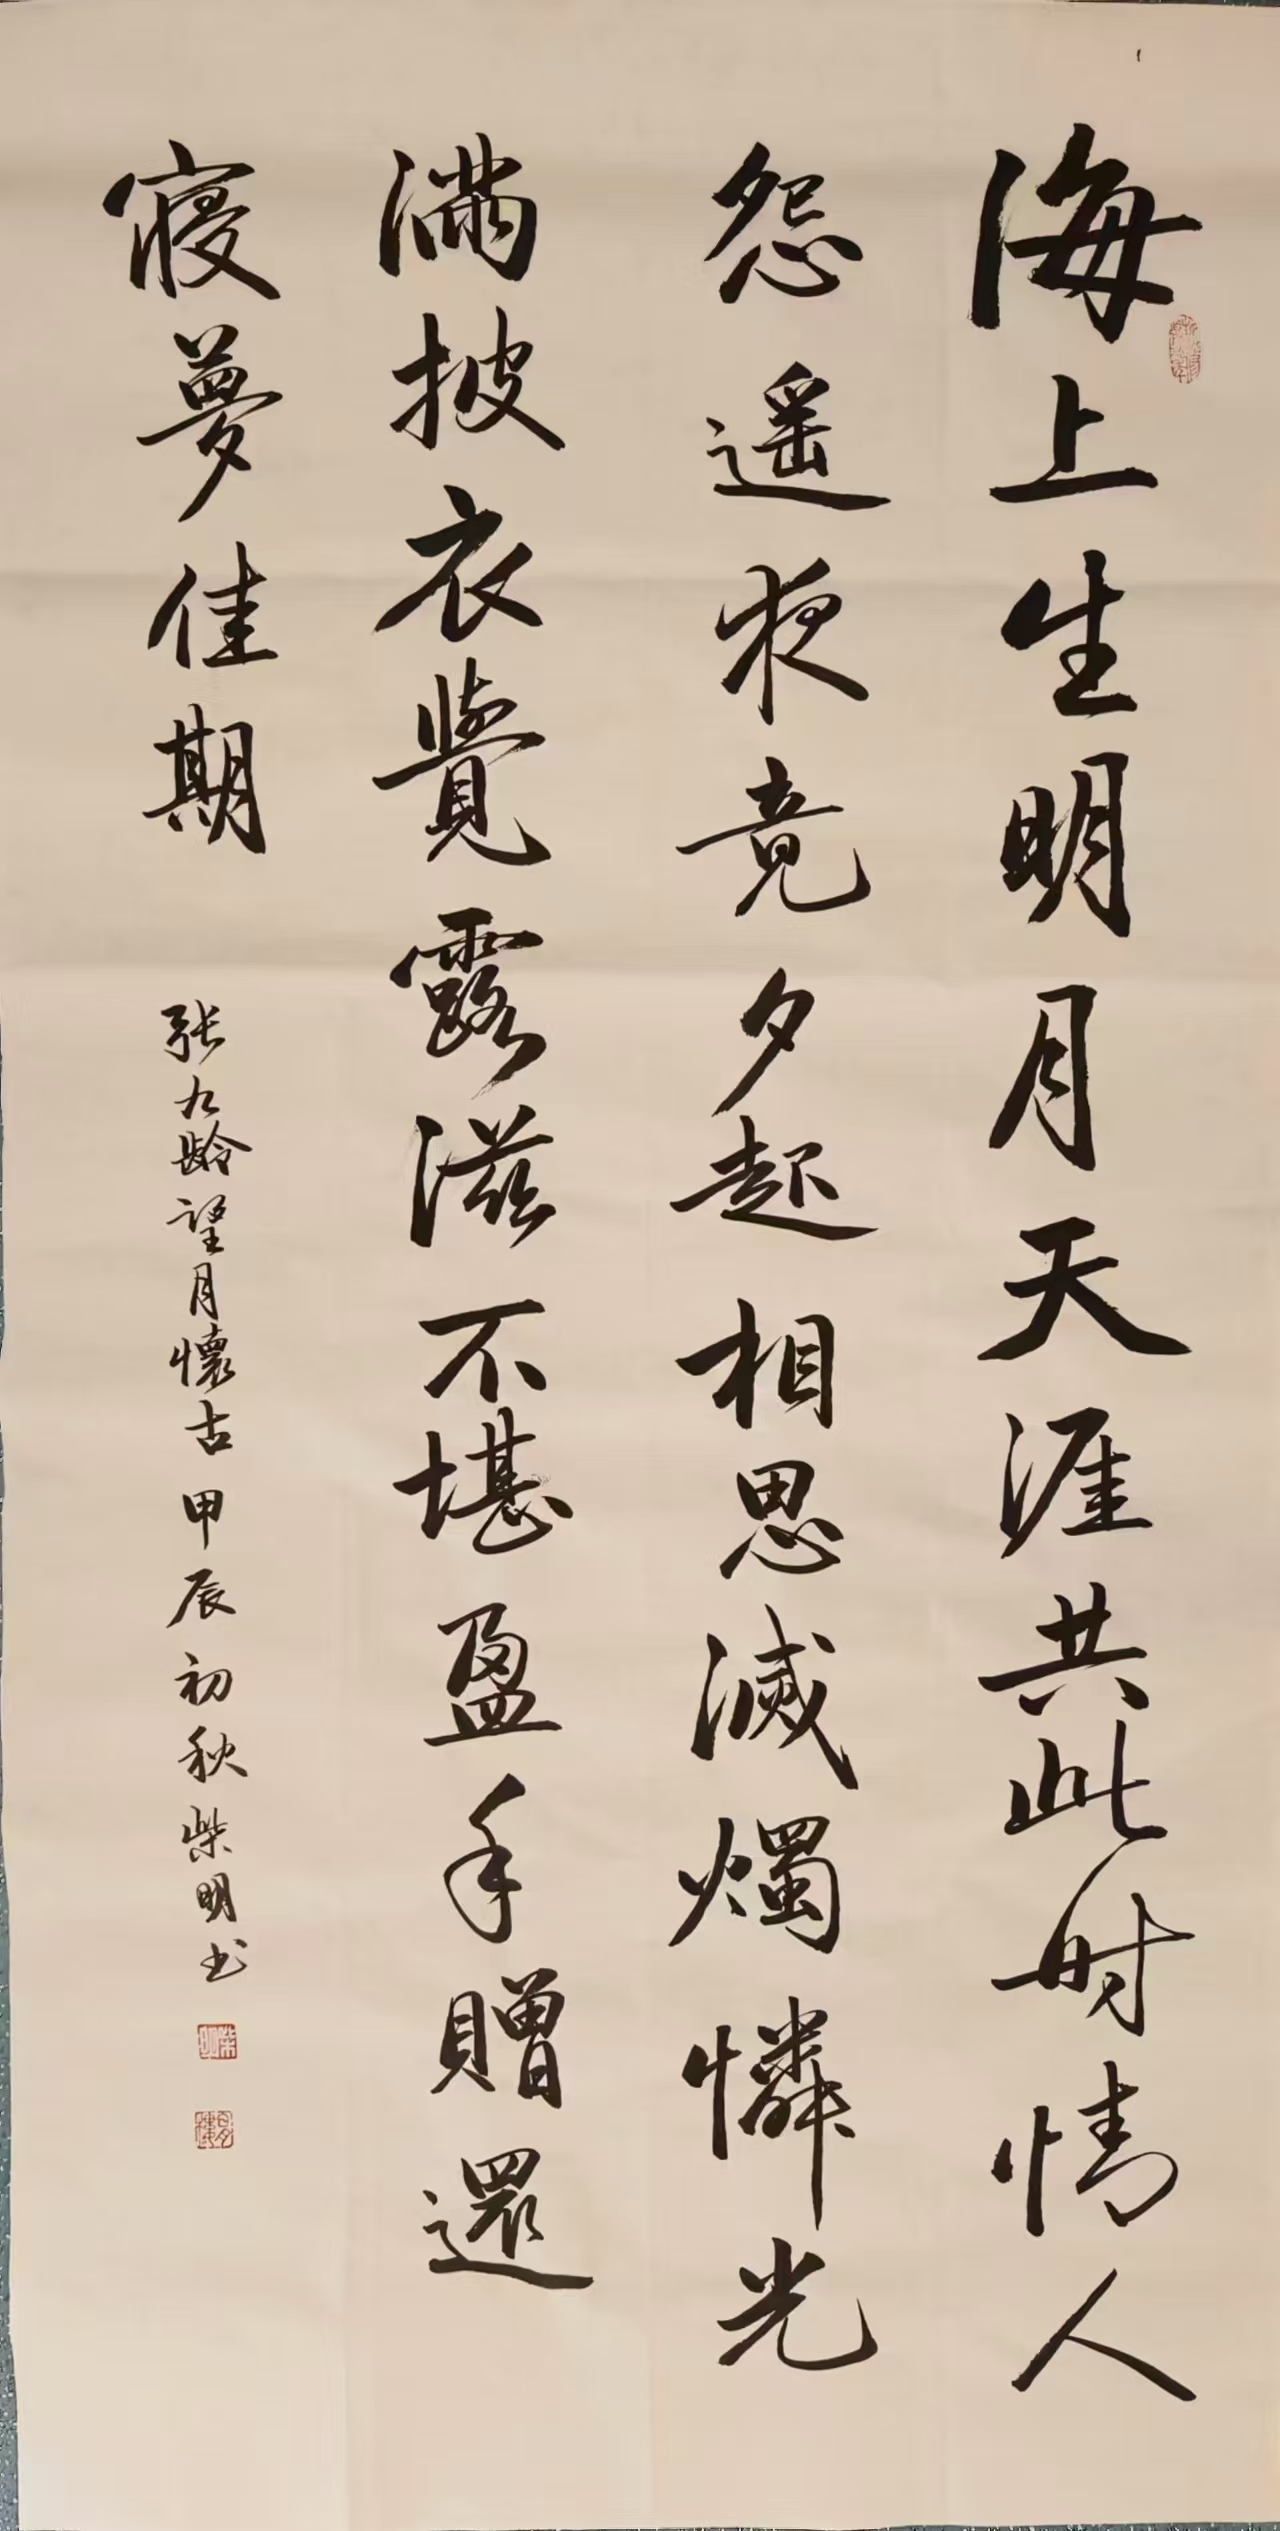 海上生明月天涯共此时情人
怨遥夜竟夕起相思滅燭憐光
满披衣覺露滋不堪盈手贈還
寢夢佳期
张九龄望月懷古甲辰初秋柴明书